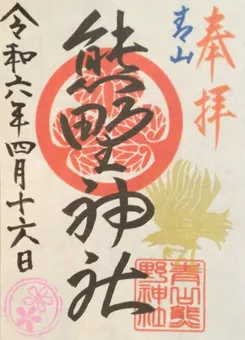 奉拝
青山
熊野神社
令和六年四月十六日
青山熊
野神社